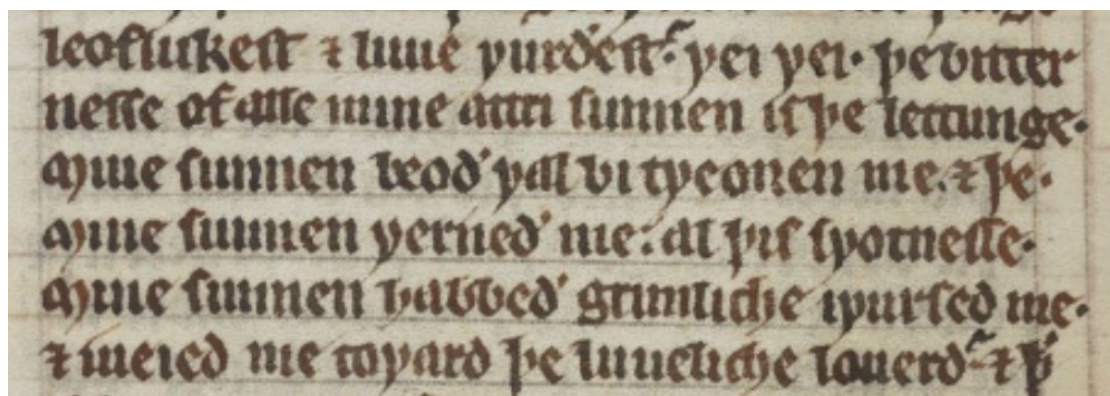 leoflukest ⁊ luue ƿurðest. ƿei ƿei. þe bitter
nesse of alle mine attri sunnen is þe lettunge.
Mine sunnen beoð ƿal bi tƿeonen me. ⁊ þe.
Mine sunnen ƿerneð me. al þis sƿotnesse.
Mine sunnen habbeð grimliche iƿursed me.
⁊ iueied me toƿard þe luueliche louerd. ⁊ ꝥ